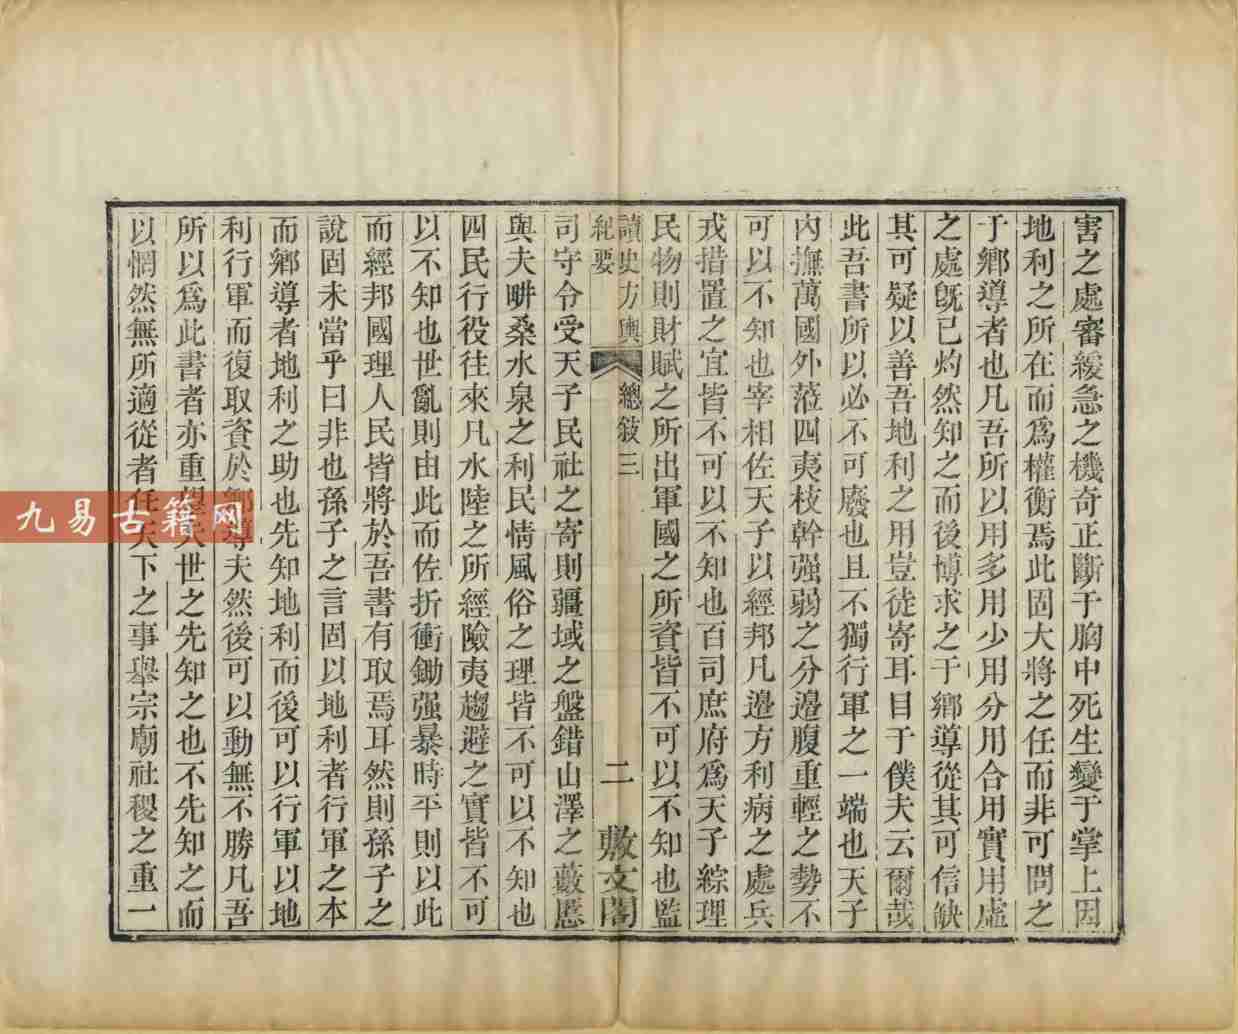 害之處審緩急之機奇正斷于胸中死生變于掌上因
地利之所在而爲權衡焉此固大將之任而非可問之
于鄉導者也凡吾所以用多用少用分用合用實用虛
之處旣已灼然知之而後博求之于鄉導從其可信缺
其可疑以善吾地利之用豈徒寄耳目于僕夫云爾哉
此吾書所以必不可廢也且不獨行軍之一端也天子
內撫萬國外蒞四夷枝幹强弱之分邊腹重輕之勢不
可以不知也宰相佐天子以經邦凡邊方利病之處兵
戎措置之宜皆不可以不知也百司庶府爲天子綜理
民物則財賦之所出軍國之所資皆不可以不知也監
讀史方輿
紀要
總敘三
二
敷文閣
司守令受天子民社之寄則疆域之盤錯山澤之藪慝
與夫畊桑水泉之利民情風俗之理皆不可以不知也
四民行役往來凡水陸之所經險夷趨避之實皆不可
以不知也世亂則由此而佐折衝鋤强暴時平則以此
而經邦國理人民皆將於吾書有取焉耳然則孫子之
說固未當乎曰非也孫子之言固以地利者行軍之本
而鄉導者地利之助也先知地利而後可以行軍以地
利行軍而復取資於鄉導夫然後可以動無不勝凡吾
所以爲此書者亦重望夫世之先知之也不先知之而
以惘然無所適從者任天下之事舉宗廟社稷之重一
九易古籍网